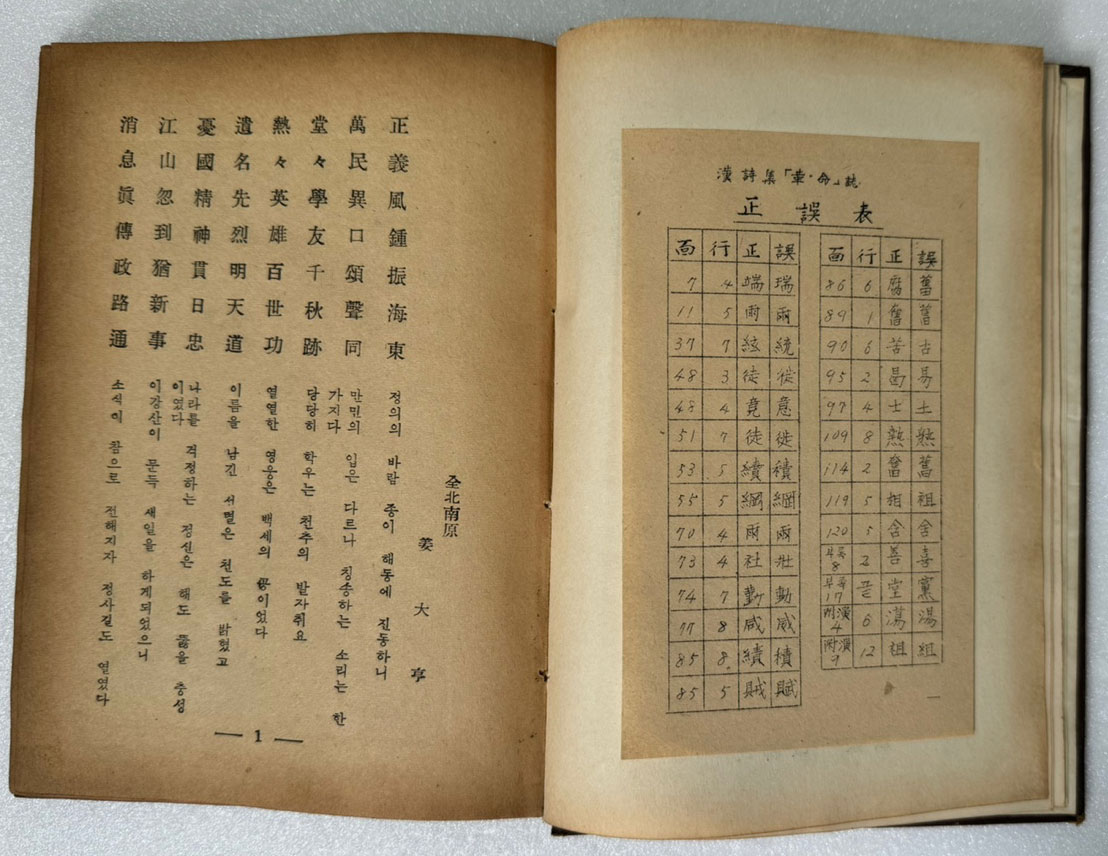 全北南原
姜大亨
正義風鍾振海東
萬民異口頌聲同
堂々學友千秋跡
熱々英雄百世功
遺名先烈明天道
憂國精神貫日忠
江山忽到猶新事
消息眞傳政路通
정의의 바람 종이 해동에 진동하니
만민의 입은 다르나 칭송하는 소리는 한
가지다
당당히 학우는 천추의 발자취요
열열한 영웅은 백세의 공이었다
이름을 남긴 천도를 밝혔고
나라를 걱정하는 정신은 해도 뚫을 충성
이였다
이강산이 문득 새일을 하게되었으니
소식이 참으로 전해지자 정사길도 열였다
— 1 —
漢詩集「革·命」誌
正誤表
面 行 正 誤
7 4 端 瑞
11 5 雨 兩
37 7 絃 統
48 3 徒 従
48 4 竟 意
51 7 徒 徙
53 5 續 積
55 5 綱 網
70 4 雨 兩
73 4 社 壯
74 7 勤 動
77 8 咸 威
85 8 績 積
85 5 賊 賦
面 行 正 誤
86 6 舊
89 1 奮 舊
90 6 苦 古
95 2 曷 易
97 4 士 土
109 8 熱
114 2 奮 舊
119 5 相 祖
120 5 舍
부록 8 2 善 喜
부록 17 끝 堂 黨
附漢 4 6 蕩 湯
附漢 9 12 祖 組